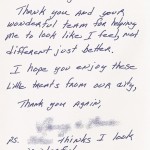 Thank you and your
wonderful team for helping
me to look like I feel, not
different just better.
I hope you enjoy these
little treats from our city,
Thank you again,
P.S. thinks I look